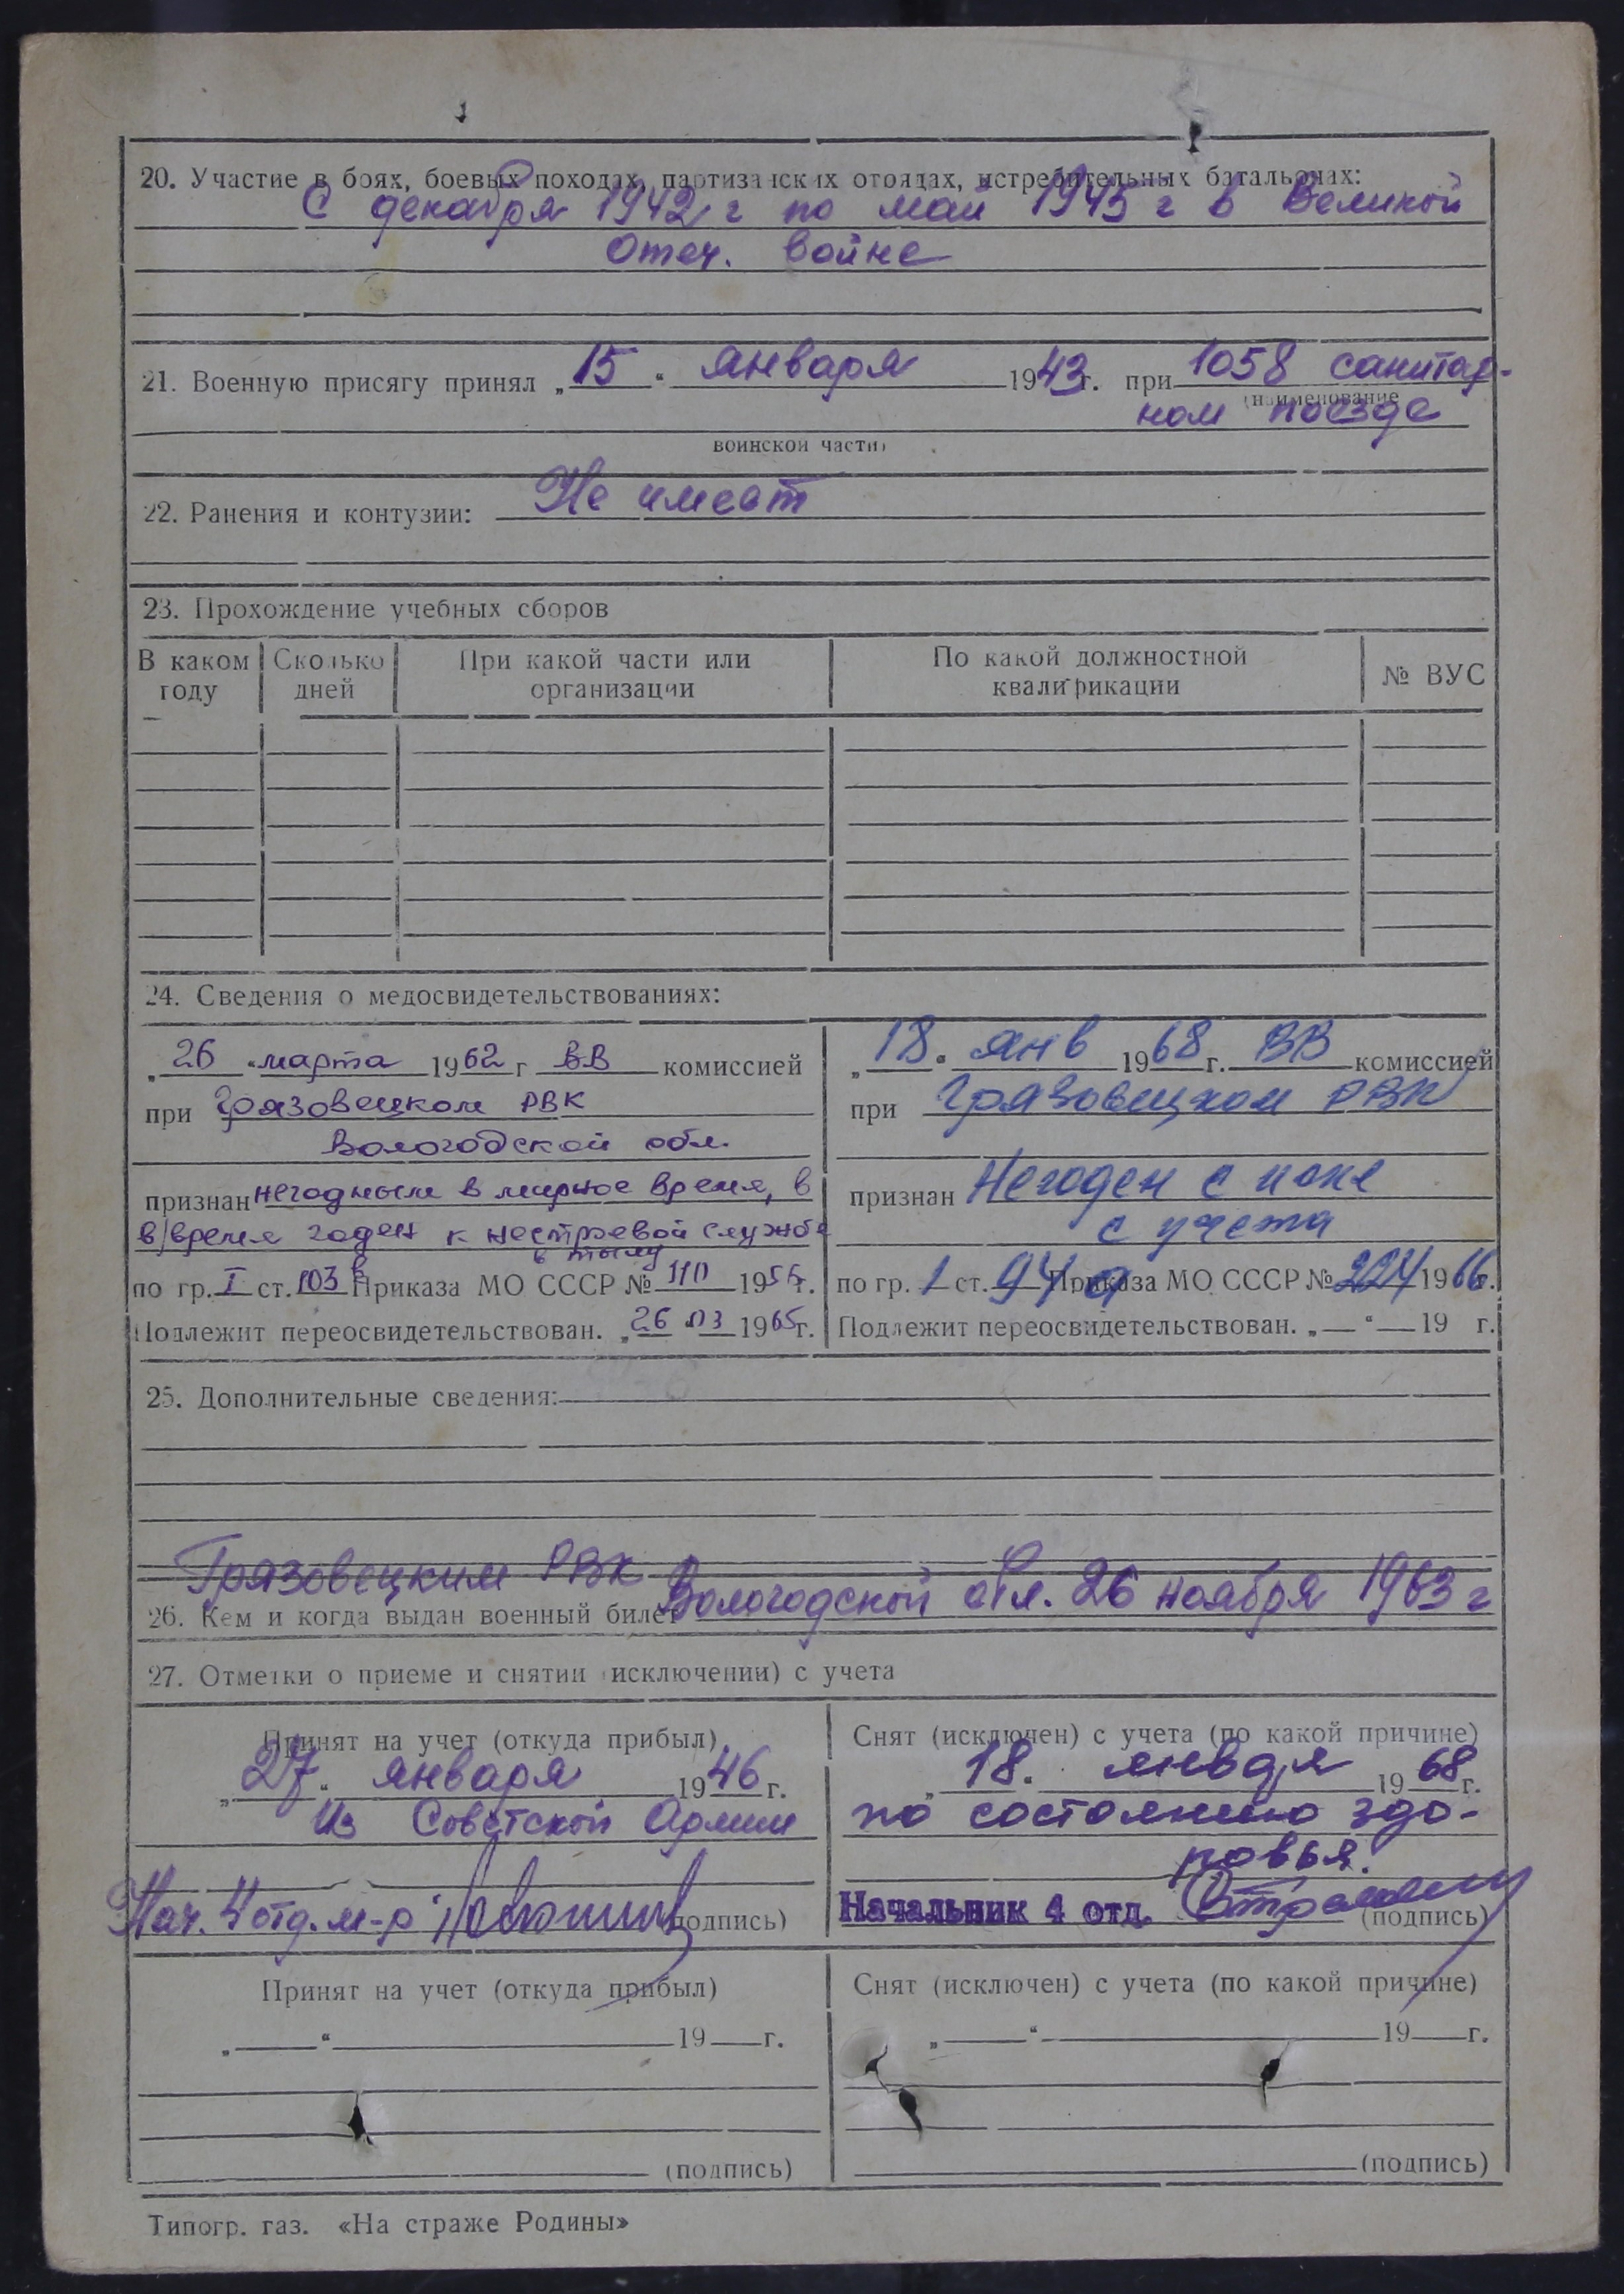 20. Участие в боях, боевых походах, партизанских отрядах, истребительных батальонах:
С декабря 1942 г по май 1945 г в Великой
Отеч. войне
21. Военную присягу принял „15“ января 1943 г. при 1058 санитар-
(наименование
ном поезде
воинской части)
22. Ранения и контузии: Не имеет
23. Прохождение учебных сборов
В каком году | Сколько дней | При какой части или организации | По какой должностной квалификации | № ВУС
24. Сведения о медосвидетельствованиях:
„26“ марта 1962 г ВВ комиссией
при Грязовецком РВК
Вологодской обл.
признан негодным в мирное время, в
в/время годен к нестроевой службе
в тылу
по гр. I ст. 103 в Приказа МО СССР № 110 1956 г.
Подлежит переосвидетельствован. „26“ 03 1965 г.
„18“ янв 1968 г. ВВ комиссией
при Грязовецком РВК
признан Негоден с искл
с учета
по гр. 1 ст. 94 а Приказа МО СССР № 224 1966 г.
Подлежит переосвидетельствован. „—“ — 19 г.
25. Дополнительные сведения:
Грязовецким РВК
26. Кем и когда выдан военный билет Вологодской обл. 26 ноября 1963 г
27. Отметки о приеме и снятии (исключении) с учета
Принят на учет (откуда прибыл)
„27“ января 1946 г.
Из Советской Армии
Нач. 4 отд. м-р (подпись)
Снят (исключен) с учета (по какой причине)
„18“ января 1968 г.
по состоянию здо-
ровья.
Начальник 4 отд. (подпись)
Принят на учет (откуда прибыл)
„—“ — 19 — г.
(подпись)
Снят (исключен) с учета (по какой причине)
„—“ — 19 — г.
(подпись)
Типогр. газ. «На страже Родины»